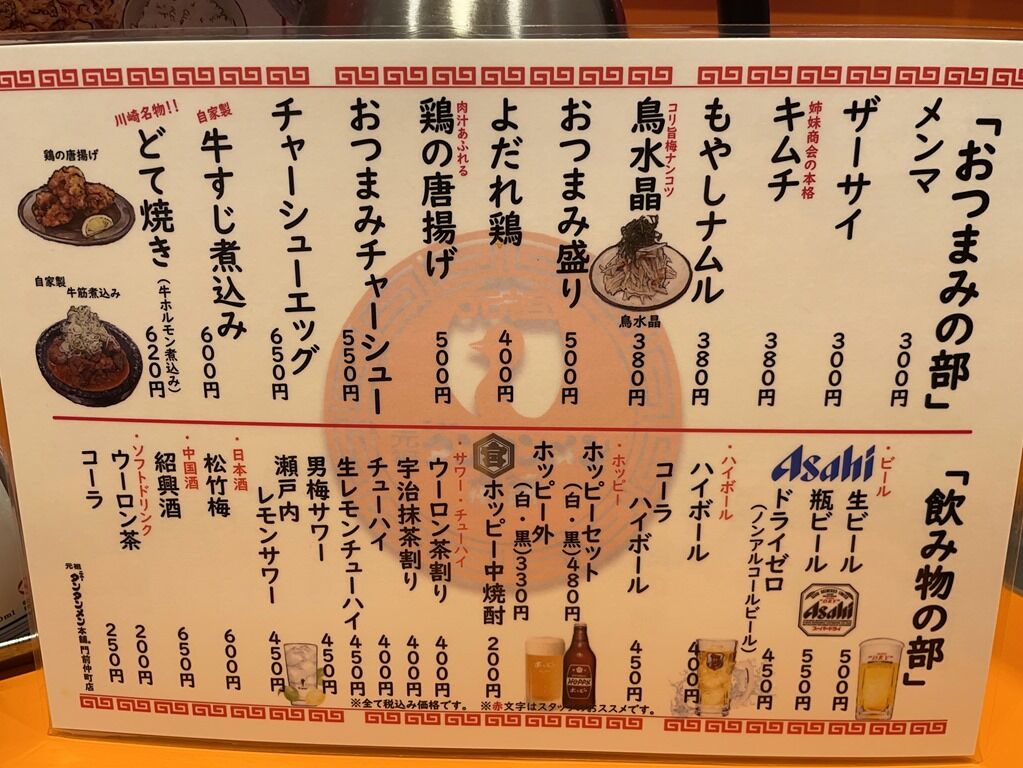 「おつまみの部」
メンマ 300円
ザーサイ 300円
姉妹商会の本格
キムチ 380円
もやしナムル 380円
コリ旨梅ナンコツ
鳥水晶 380円
鳥水晶
おつまみ盛り 500円
よだれ鶏 400円
肉汁あふれる
鶏の唐揚げ 500円
おつまみチャーシュー 550円
チャーシューエッグ 650円
自家製
牛すじ煮込み 600円
川崎名物!!
どて焼き(牛ホルモン煮込み) 620円
鶏の唐揚げ
自家製
牛筋煮込み
「飲み物の部」
・ビール
Asahi
生ビール 500円
瓶ビール 550円
ドライゼロ
(ノンアルコールビール) 450円
Asahi
スーパードライ
・ハイボール
ハイボール 400円
コーラ
ハイボール 450円
・ホッピー
ホッピーセット
(白・黒)480円
ホッピー外
(白・黒)330円
ホッピー中焼酎 200円
HOPPY
ホッピー
・サワー・チューハイ
ウーロン茶割り 400円
宇治抹茶割り 400円
チューハイ 400円
生レモンチューハイ 450円
男梅サワー 450円
瀬戸内
レモンサワー 450円
・日本酒
松竹梅 600円
・中国酒
紹興酒 650円
・ソフトドリンク
ウーロン茶 200円
コーラ 250円
元祖ニュータンタンメン本舗門前仲町店
※全て税込み価格です。 ※赤文字はスタッフのおススメです。